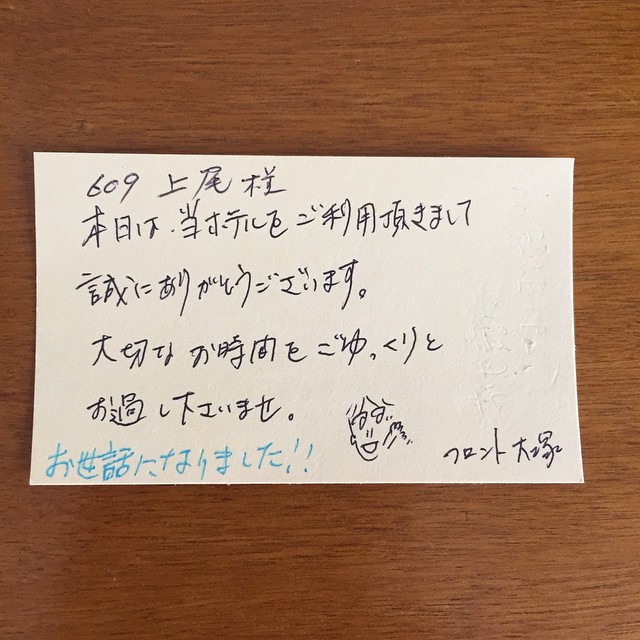 609 上尾様
本日は、当ホテルをご利用頂きまして
誠にありがとうございます。
大切なお時間をごゆっくりと
お過し下さいませ。
フロント 大塚
お世話になりました!!